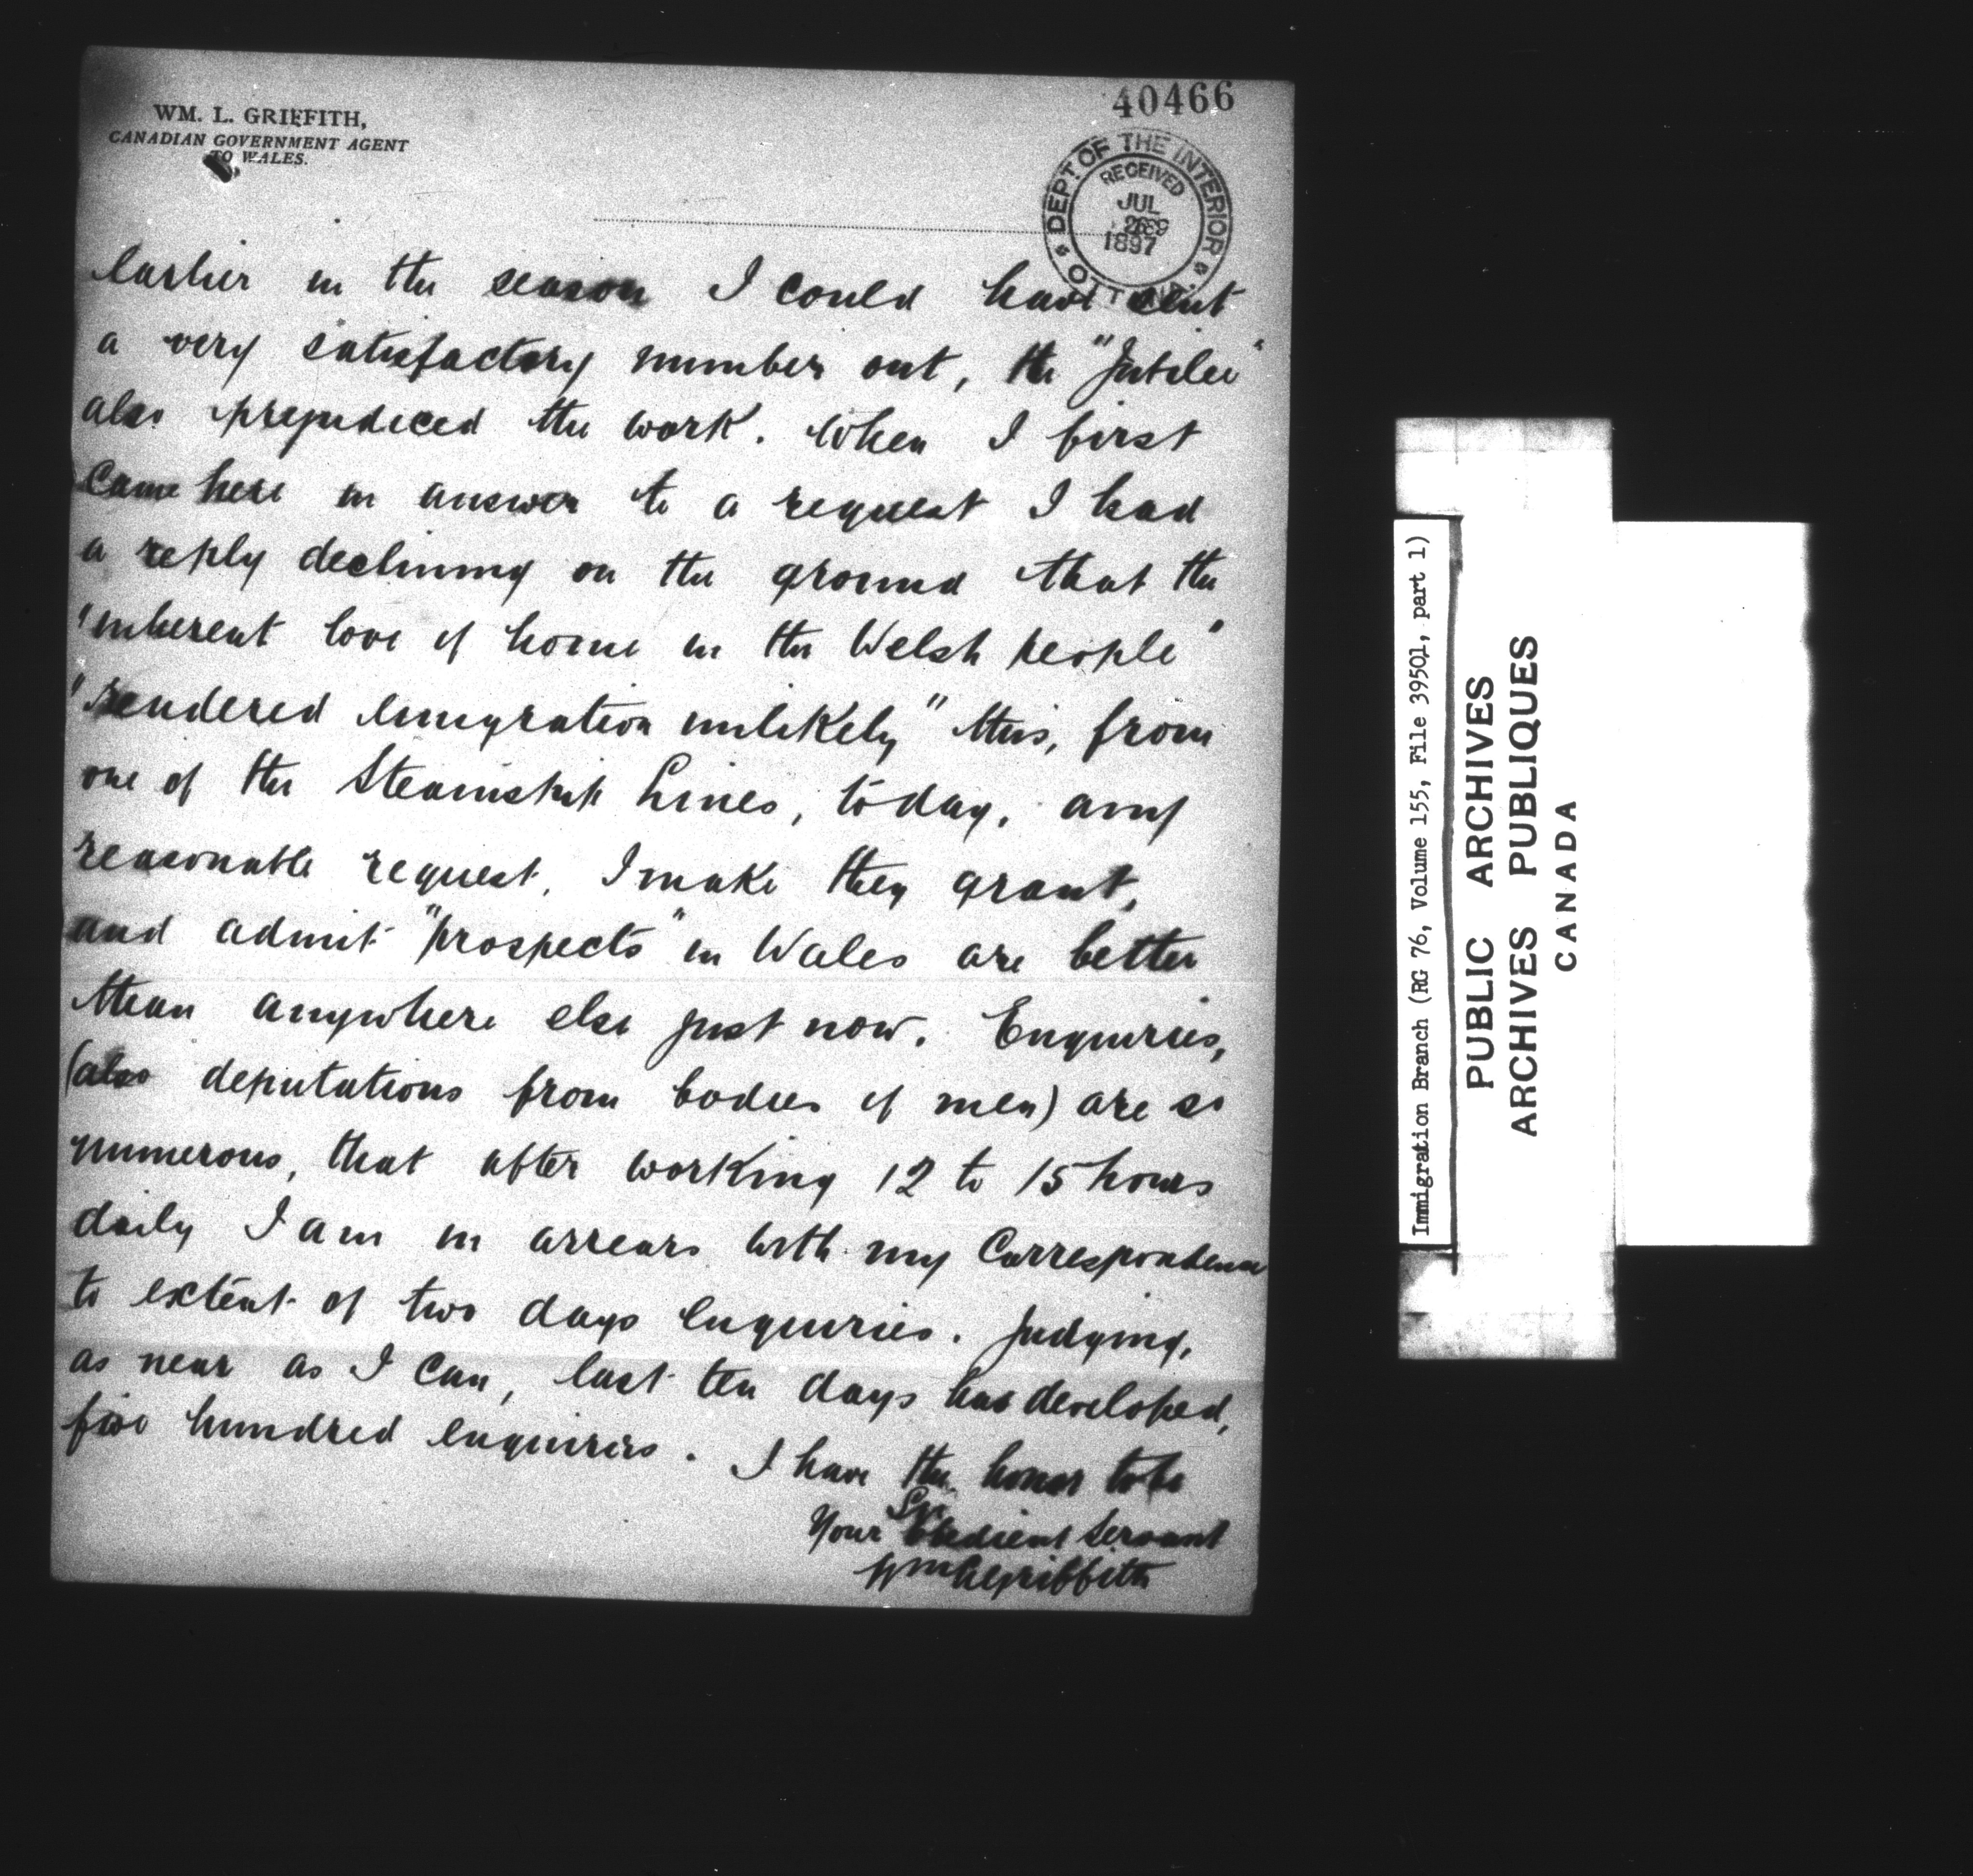 40466
WM. L. GRIFFITH,
CANADIAN GOVERNMENT AGENT
TO WALES.
DEPT OF THE INTERIOR
RECEIVED
JUL
1897
OTTAWA
Earlier in the season I could have sent
a very satisfactory number out, the "Jubilee"
also prejudiced the work. When I first
came here in answer to a request I had
a reply declining on the ground that the
"inherent love of home in the Welsh people"
"rendered Emigration unlikely" this, from
one of the Steamship Lines, today, any
reasonable request, I make they grant,
and admit "prospects" in Wales are better
than anywhere else just now. Enquiries,
(also deputations from bodies of men) are so
numerous, that after working 12 to 15 hours
daily I am in arrears with my Correspondence
to extent of two days Enquiries. Judging,
as near as I can, last ten days has developed,
five hundred enquirers. I have the honor to be
Sir
Your Obedient Servant
Wm L Griffith
Immigration Branch (RG 76, Volume 155, File 39501, part 1)
PUBLIC ARCHIVES
ARCHIVES PUBLIQUES
CANADA